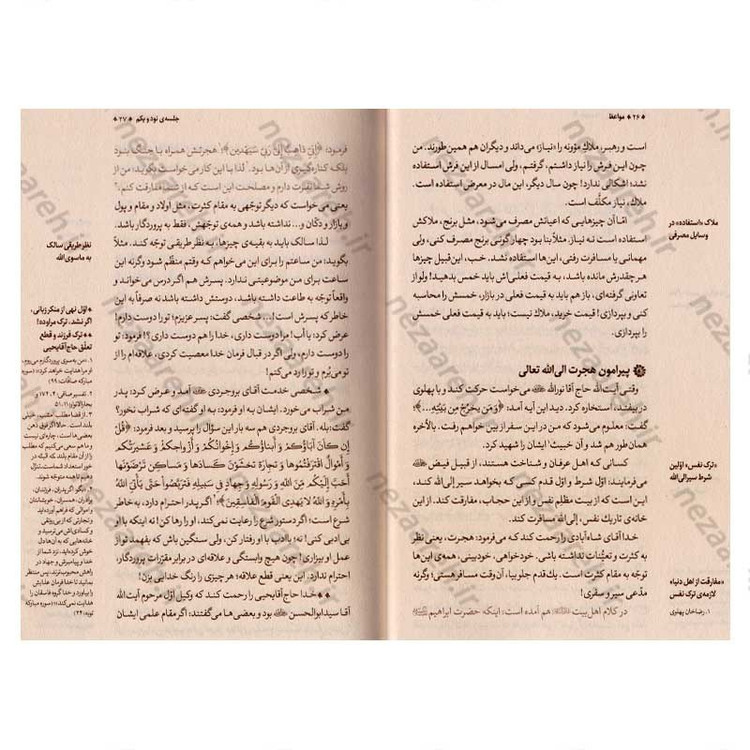 ۲۶ مواعظ
است و رهبر، ملاك مؤونه را «نیاز» می‌داند و دیگران هم همین طورند. من
چون این فرش را نیاز داشتم، گرفتم، ولی امسال از این فرش استفاده
نشد؛ اشکالی ندارد! چون سال دیگر، این مال در معرض استفاده است.
ملاك، نیاز مکلّف است.
امّا آن چیزهایی که اعیانش مصرف می‌شود، مثل برنج، ملاکش
استفاده است نه نیاز. مثلاً بنا بود چهار گونی برنج مصرف کنی، ولی
مهمانی یا مسافرت رفتی، این‌ها استفاده نشد. خب، این‌قبیل چیزها
هر چقدرش مانده باشد، به قیمت فعلی‌اش باید خمس بدهید! ولو از
تعاونی گرفته‌ای، باز هم باید به قیمت فعلی در بازار، خمسش را محاسبه
کنی و بپردازی. قیمت خرید، ملاك نیست؛ باید به قیمت فعلی خمسش
را بپردازی.
ملاک «استفاده» در
وسایل مصرفی
پیرامون هجرت الی‌الله تعالی
وقتی آیت‌الله حاج آقا نورالله می‌خواست حرکت کند و با پهلوی
در بیفتند، استخاره کرد. دید این آیه آمد: ﴿وَ مَن یَخرُج مِن بَیتِهِ...﴾؛
گفت: معلوم می‌شود که من در این سفر از بین خواهم رفت. بالأخره
همان طور هم شد و آن خبیث ایشان را شهید کرد.
کسانی که اهل عرفان و شناخت هستند، از قبیل فیض
می‌فرمایند: اوّل شرط و اوّل قدم کسی که بخواهد سیر إلی‌الله کند،
این است که از بیت مظلم نفس و از این حجاب، مفارقت کند. از این
خانه‌ی تاریك نفس، إلی‌الله مسافرت کند.
«ترک نفس» اوّلین
شرط سیر الی‌الله
خدا آقای شاه‌آبادی را رحمت کند که می‌فرمود: هجرت، یعنی نظر
به کثرت و تعیُّنات نداشته باشی. خودخواهی، خودبینی، همه‌ی این‌ها
توجّه به مقام کثرت است. یك‌قدم جلو بیا، آن وقت مسافر هستی؛ وگرنه
مدّعی سیر و سفری!
در کلام اهل‌بیت هم آمده است: اینکه حضرت ابراهیم
«مفارقت از اهل دنیا»
لازمه‌ی ترک نفس
۱. رضاخان پهلوی
جلسه‌ی نود و یکم ۲۷
فرمود: ﴿إِنّی ذاهِبٌ إِلی رَبّی سَیَهدینِ﴾؛ هجرتش همراه با جنگ نبود
بلکه کناره‌گیری از آن‌ها بود. لذا با این کار می‌خواست بگوید: من از
روش شما نفرت دارم و مصلحت این است که از شما مفارقت کنم.
یعنی می‌خواست که دیگر توجّهی به مقام کثرت، مثل اولاد و مقام و پول
و بازار و دکّان و... نداشته باشد و همه‌ی توجّهش، فقط به پروردگار باشد.
لذا سالك باید به بقیه‌ی چیزها، به نظر طریقی توجّه کند. مثلاً
بگوید: من ساعتم را برای این می‌خواهم که وقتم منظّم شود وگرنه این
ساعت برای من موضوعیتی ندارد. پسرش هم اگر درس می‌خواند و
واقعاً توجّه به طاعت داشته باشد، دوستش داشته باشد نه صرفاً به این
خاطر که پسرش است!... شخصی گفت: پسر عزیزم! تو را دوست دارم!
عرض کرد: یا أب! مرا دوست داری، خدا را هم دوست داری؟! فرمود: تو
را دوست دارم، ولی اگر در قبال فرمان خدا معصیت کردی، علاقه‌ام از
تو می‌بُرم و تو را رد می‌کنم.
نظر طریقی سالک
به ماسوی‌الله
شخصی خدمت آقای بروجردی آمد و عرض کرد: پدر
من شراب می‌خورد. ایشان به او فرمود: به او گفته‌ای که شراب نخور؟
گفت: بله. آقای بروجردی هم سه بار این سؤال را پرسید و بعد فرمود: ﴿قُل
إِن کانَ آباؤُکُم وَ أَبناؤُکُم وَ إِخوانُکُم وَ أَزواجُکُم وَ عَشیرَتُکُم
وَ أَموالٌ اقتَرَفتُموها وَ تِجارَةٌ تَخشَونَ کَسادَها وَ مَساکِنُ تَرضَونَها
أَحَبَّ إِلَیکُم مِنَ اللهِ وَ رَسولِهِ وَ جِهادٍ فی سَبیلِهِ فَتَرَبَّصوا حَتّی یَأتِیَ اللهُ
بِأَمرِهِ وَ اللهُ لا یَهدِی القَومَ الفاسِقینَ﴾؛ «اگر پدر احترام دارد، به خاطر
شرع است؛ اگر دستور شرع را رعایت نمی‌کند، او را رها کن! نه اینکه با او
بی‌ادبی کنی! نه؛ باادب با او رفتار کن، ولی سنگین باش که بفهمد تو از
عمل او بیزاری! چون هیچ وابستگی و علاقه‌ای در برابر مقرّرات پروردگار،
احترام ندارد. این یعنی قطع علاقه؛ هر چیزی را رنگ خدایی بزن!
خدا حاج آقایحیی را رحمت کند که وکیل اوّل مرحوم آیت الله
آقا سیدابوالحسن بود و بعضی‌ها می‌گفتند: اگر مقام علمی ایشان
اوّل نهی از منکر زبانی،
اگر نشد، ترک مراوده!
ترک فرزند و قطع
تعلّق حاج آقایحیی
۱. «من به‌سوی پروردگارم می‌روم،
هدایتم می‌کند» (سوره
مبارکه صافّات: ۹۹)
nezaareh.ir